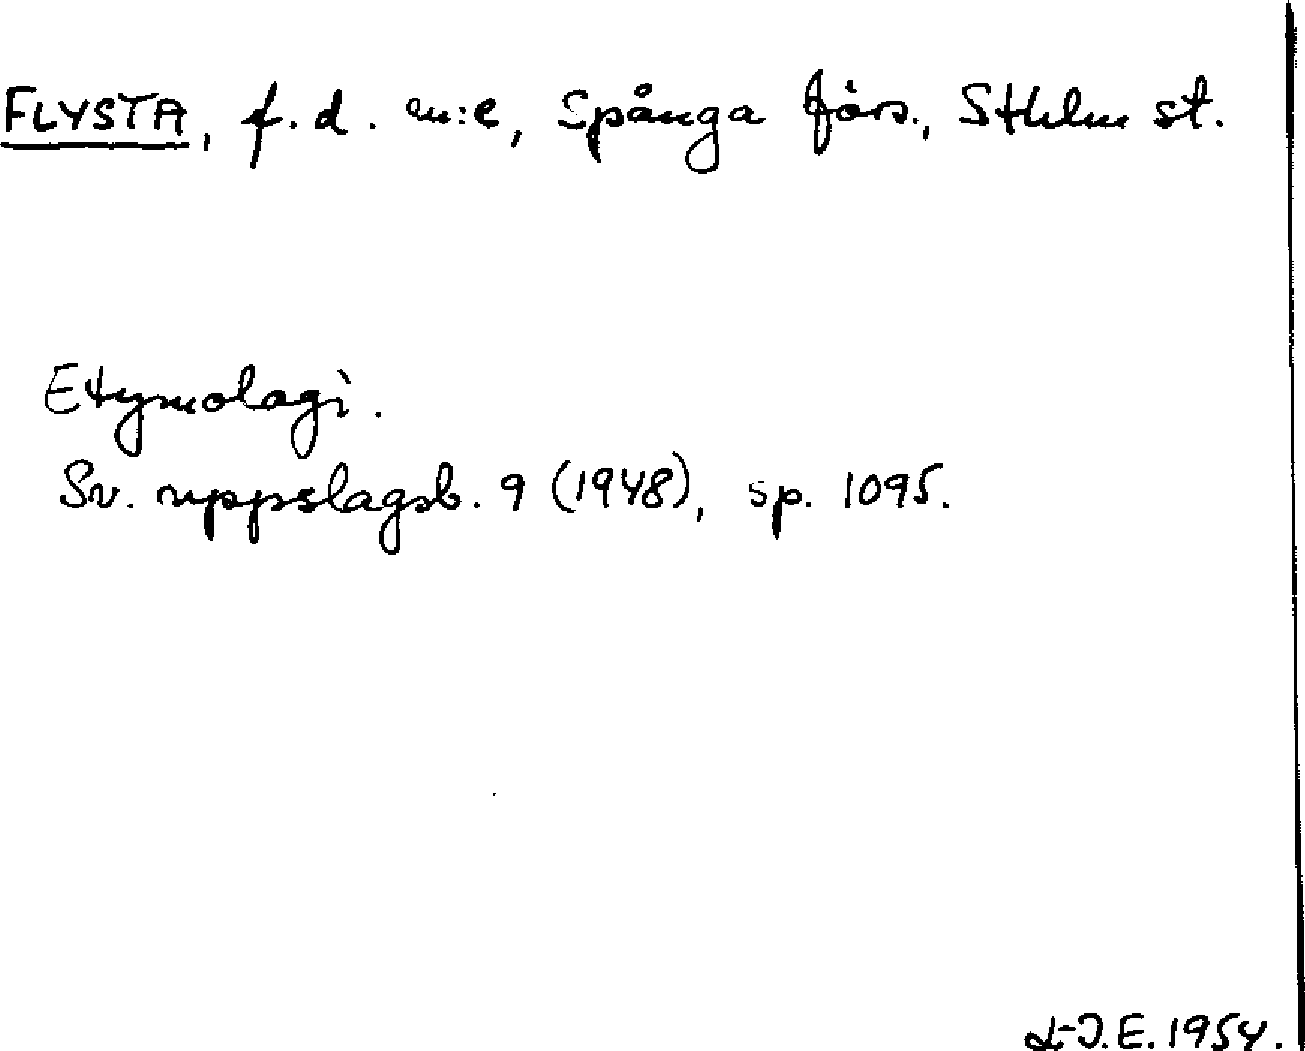 FLYSTA, f.d. m:e, Spånga förs., Sthlm st.
Etymologi.
Sv. uppslagsb. 9 (1948), sp. 1095.
L-J.E. 1954.